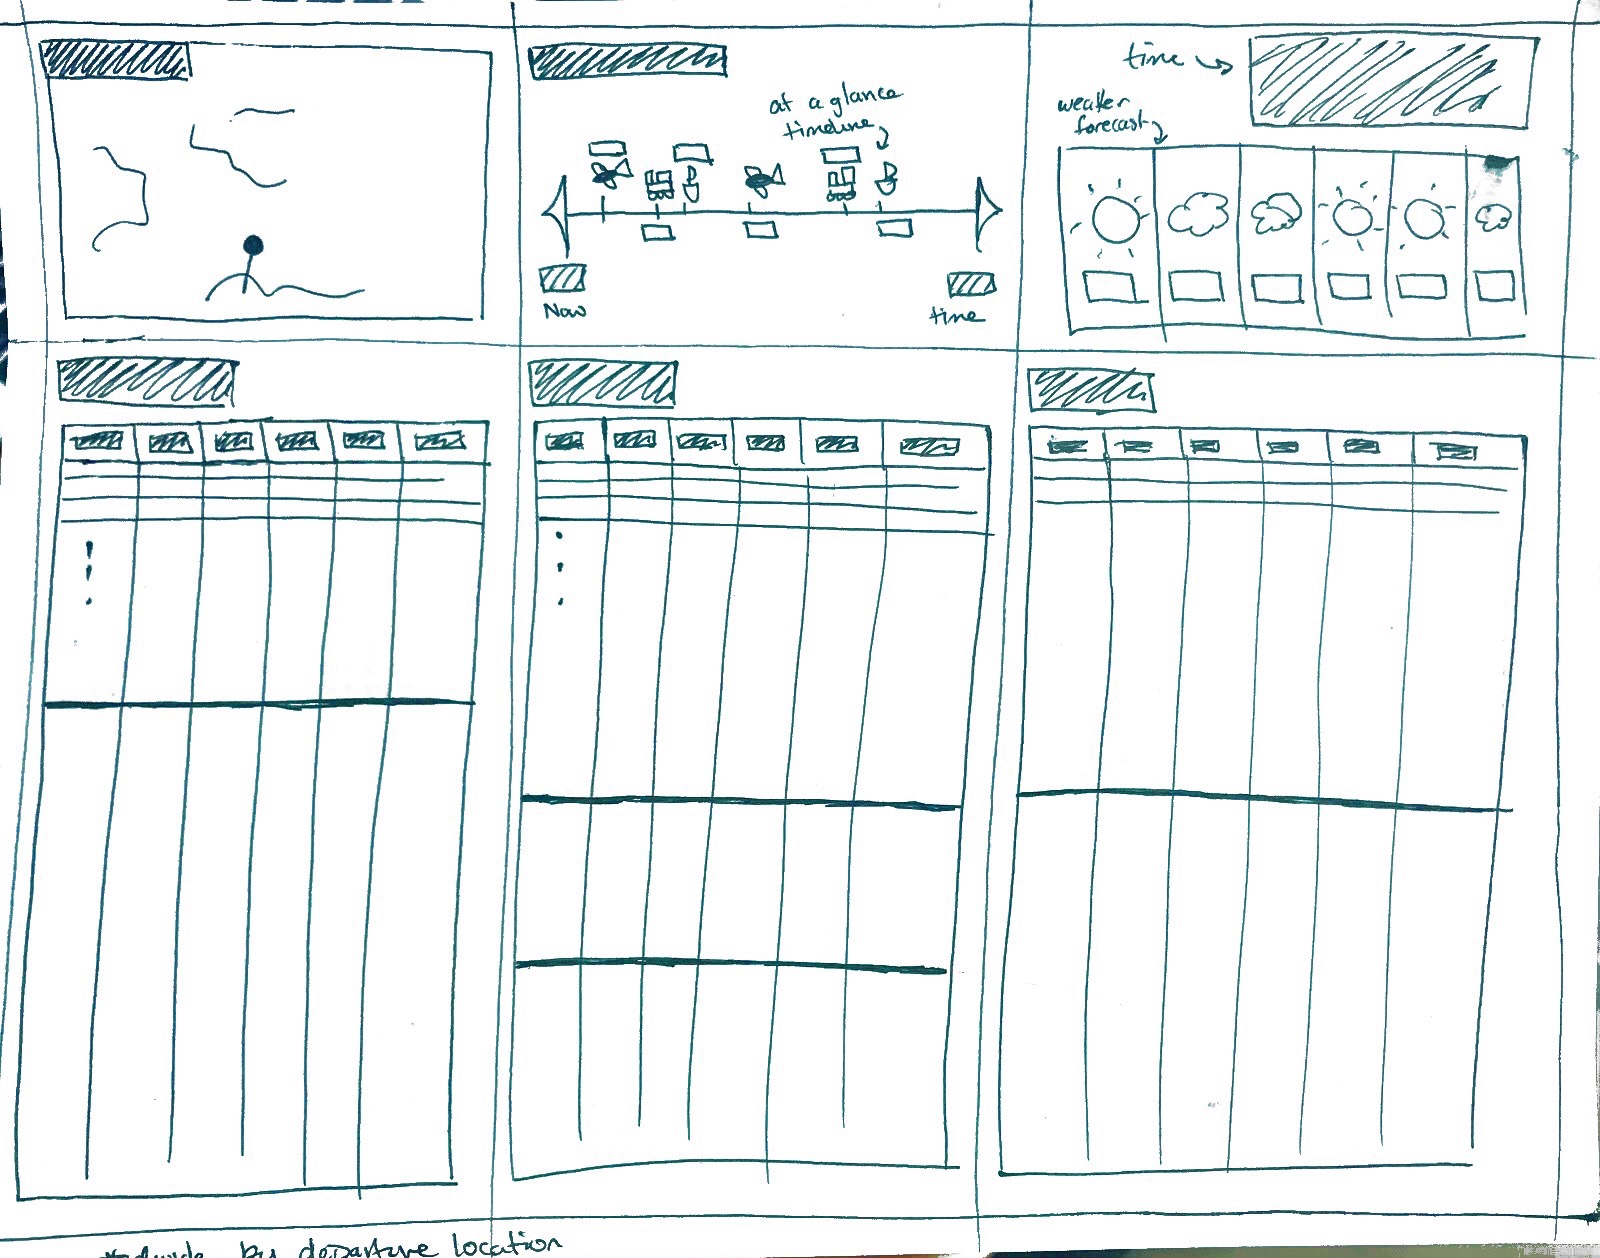 at a glance
timeline
Now
time
time
weather
forecast
by departure location